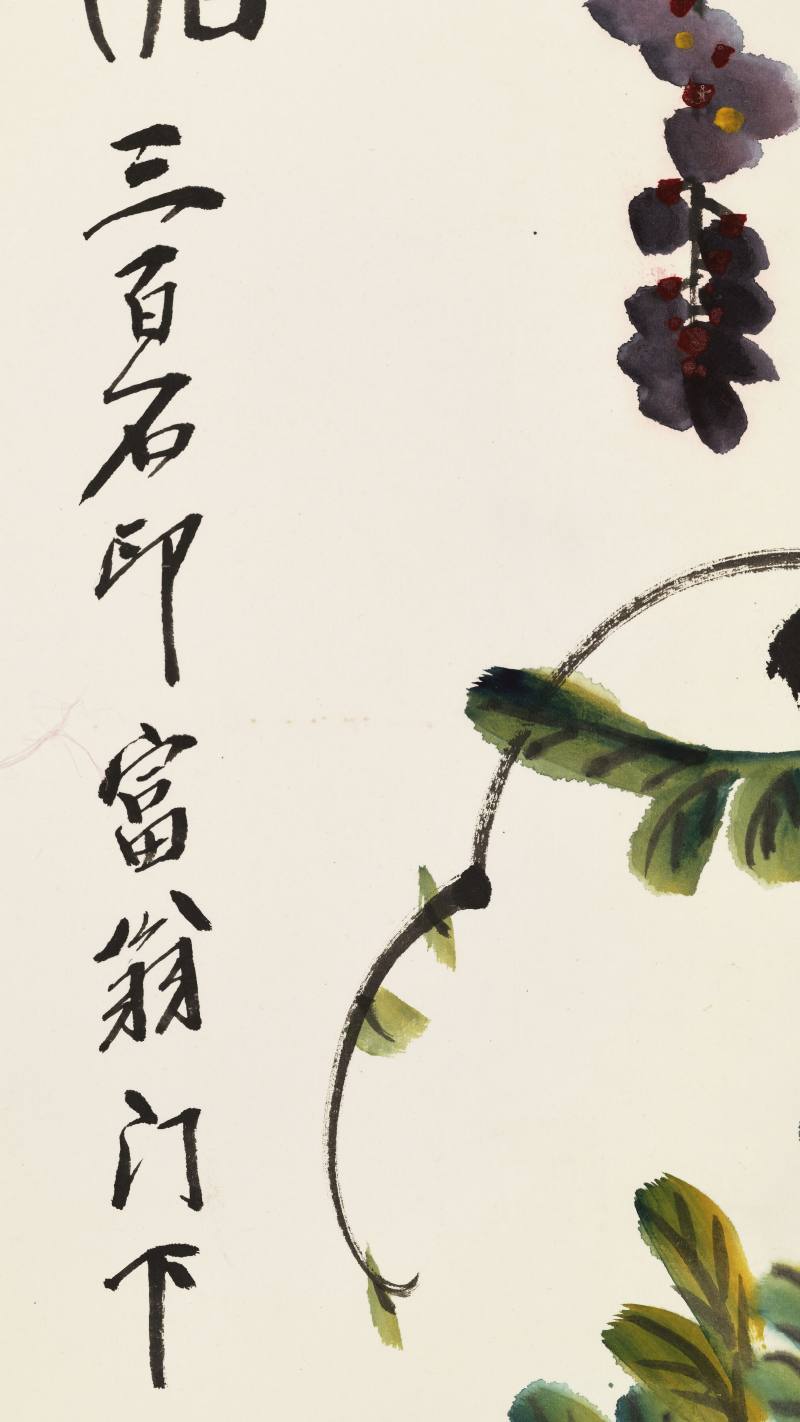 三百石印富翁门下